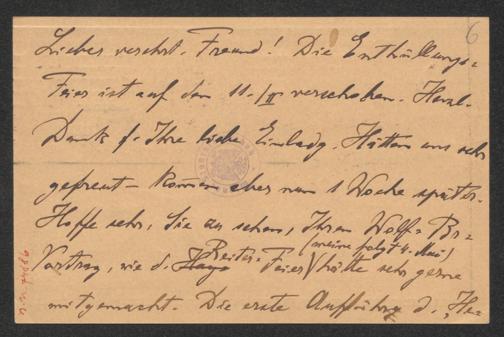 6
Lieber verehrt. Freund! Die Enthüllungs-
Feier ist auf den 11./II verschoben. Herzl.
Dank f. Ihre liebe Einladg. Hätten uns sehr
gefreut – kommen aber nun 1 Woche später.
Hoffe sehr, Sie zu sehen, Ihren Wolf-
Vortrag, wie d. Reiter- Feier (meine folgt 4. Mai) hätte sehr gerne
mitgemacht. Die erste Aufführg d. „He-